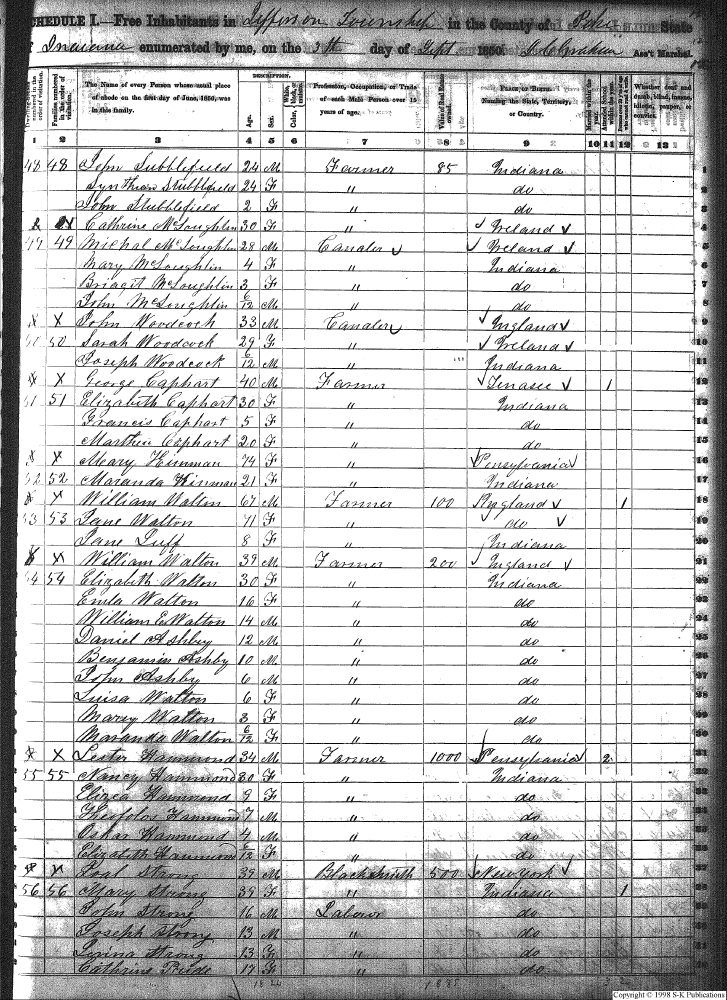 SCHEDULE I.—Free Inhabitants in Jefferson Township in the County of Pike State
Indiana enumerated by me, on the 3th day of Sept 1850. Ass't Marshal.
DESCRIPTION.
The Name of every Person whose usual place of abode on the first day of June, 1850, was in this family.
Age.
Sex.
White, Color, black, or mulatto.
Profession, Occupation, or Trade of each Male Person over 15 years of age.
Value of Real Estate owned.
PLACE OF BIRTH. Naming the State, Territory, or Country.
Whether deaf and dumb, blind, insane, idiotic, pauper, or convict.
1 2 3 4 5 6 7 8 9 10 11 12 13
48 48 John Stubblefield 24 M Farmer 85 Indiana 1
Synthian Stubblefield 24 F " do 2
John Stubblefield 2 F " do 3
Cathrine McLoughlin 30 F " Ireland 4
49 49 Michal McLoughlin 28 M Canaler Ireland 5
Mary McLoughlin 4 F " Indiana 6
Bridget McLoughlin 3 F " do 7
John McLoughlin 6/12 M " do 8
x x John Woodcock 33 M Canaler Ingland 9
50 50 Sarah Woodcock 29 F " Ireland 10
Joseph Woodcock 6/12 M " Indiana 11
x x George Caphart 40 M Farmer Tenasee 1 12
51 51 Elizabeth Caphart 30 F " Indiana 13
Francis Caphart 5 F " do 14
Marthia Caphart 20 F " do 15
x x Meary Hinman 74 F " Pensylvania 16
52 52 Maranda Hinman 21 F " Indiana 17
x x William Walton 67 M Farmer 100 Ingland 1 18
53 53 Jane Walton 71 F " do 19
Jane Luff 8 F " Indiana 20
x x William Walton 39 M Farmer 200 Ingland 21
54 54 Elizabeth Walton 30 F " Indiana 22
Emla Walton 16 F " do 23
William E Walton 14 M " do 24
Daniel Ashby 12 M " do 25
Benjamin Ashby 10 M " do 26
John Ashby 6 M " do 27
Luisa Walton 6 F " do 28
Marry Walton 3 F " do 29
Maranda Walton 6/12 F " do 30
x x Lester Hammond 34 M Farmer 1000 Pensylvania 2 31
55 55 Nancy Hammond 30 F " Indiana 32
Elizea Hammond 9 F " do 33
Hammond 7 M " do 34
Oskar Hammond 4 M " do 35
Elizabeth Hammond 6/12 F " do 36
x x Poal Strong 39 M Blacksmith 500 New York 37
56 56 Mary Strong 39 F " Indiana 1 38
John Strong 16 M Labour do 39
Joseph Strong 13 M " do 40
Lurina Strong 13 F " do 41
Cathrine Pride 17 F " do 42
Copyright © 1998 S-K Publications